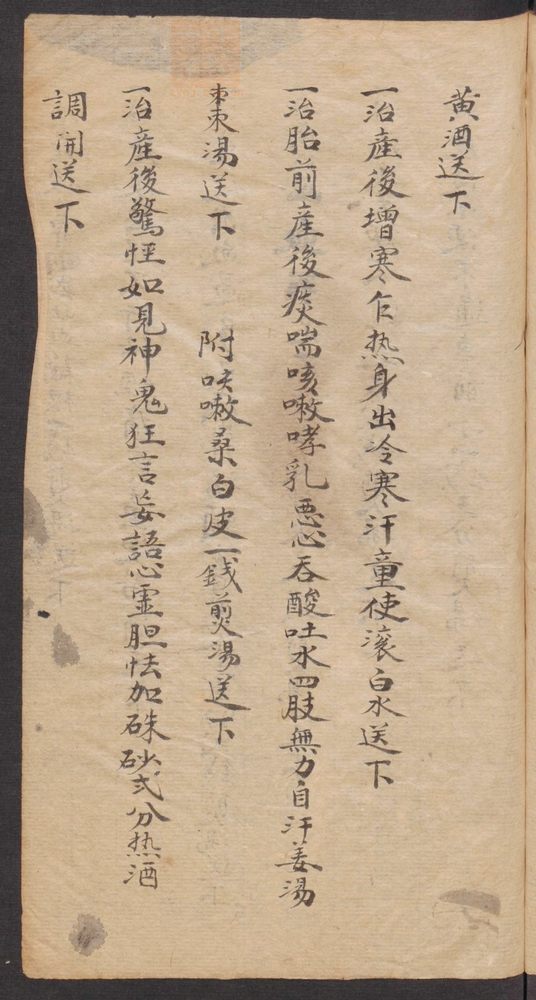 黄酒送下
一治產後增寒乍热身出冷寒汗童使滚白水送下
一治胎前產後痰喘咳嗽哮乳悪心吞酸吐水四肢無力自汗姜湯
枣湯送下　附咳嗽桑白皮一錢煎湯送下
一治產後驚怪如見神鬼狂言妄語心虚胆怯加硃砂弍分热酒
調開送下